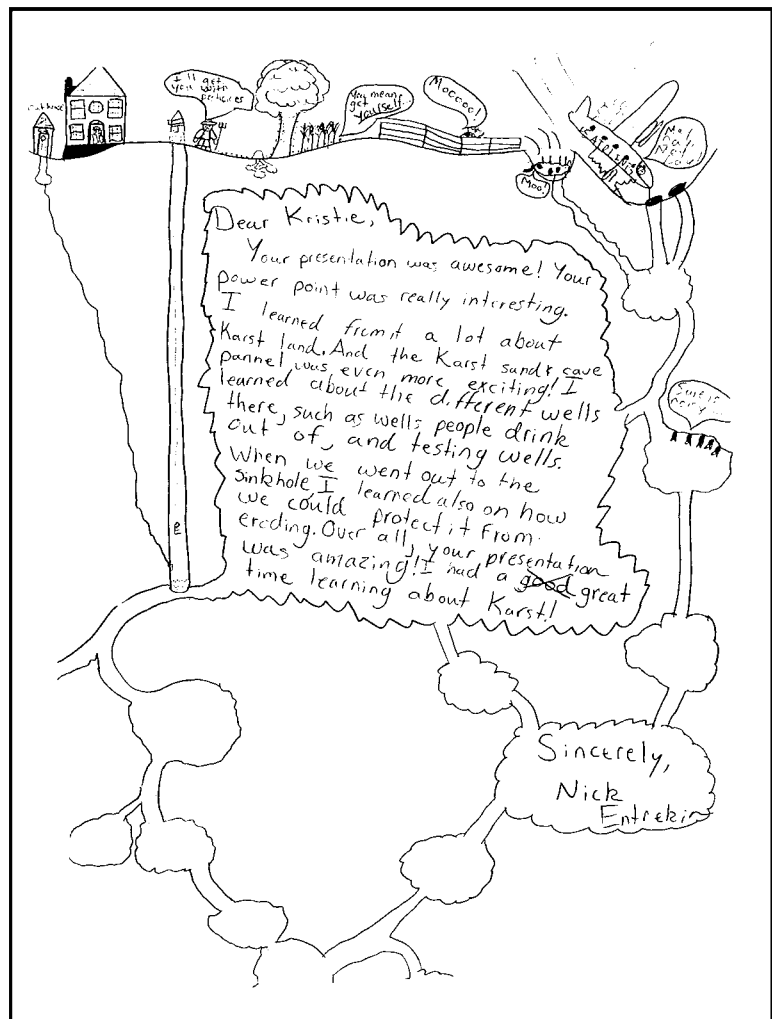 outhouse
I'll get
you with
pesticides
You mean
get
yourself...
Mooooo!
Moo!
Dear Kristie,
Your presentation was awesome! Your
power point was really interesting.
I learned from it a lot about
Karst land. And the Karst sand & cave
pannel was even more exciting! I
learned about the different wells
there, such as wells people drink
out of, and testing wells.
When we went out to the
sinkhole, I learned also on how
we could protect it from
eroding. Over all, your presentation
was amazing! I had a good great
time learning about Karst!
Sure is
noisy...
Sincerely,
Nick
Entrekin